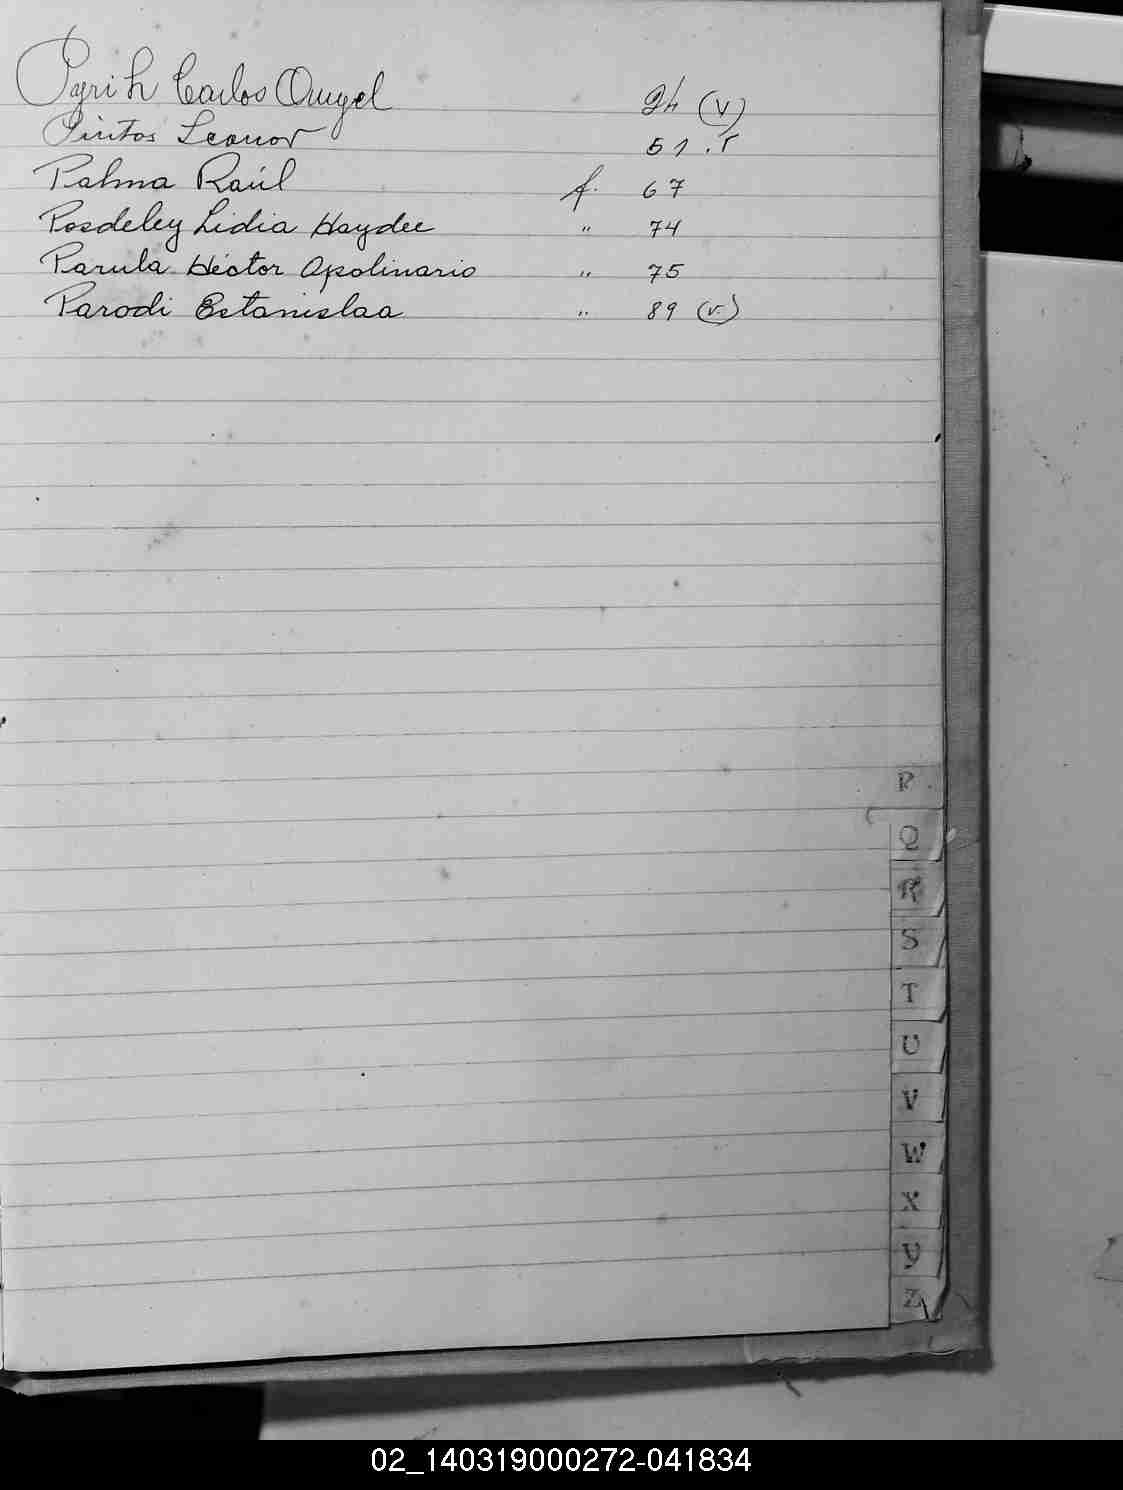 Carlos Angel (v)
Pintos Leonor 51.
Palma Raúl f. 67
Posdeley Lidia Haydee " 74
Parula Héctor Apolinario " 75
Parodi Estanislaa " 89 (v)
P
Q
R
S
T
U
V
W
X
Y
Z
02_140319000272-041834